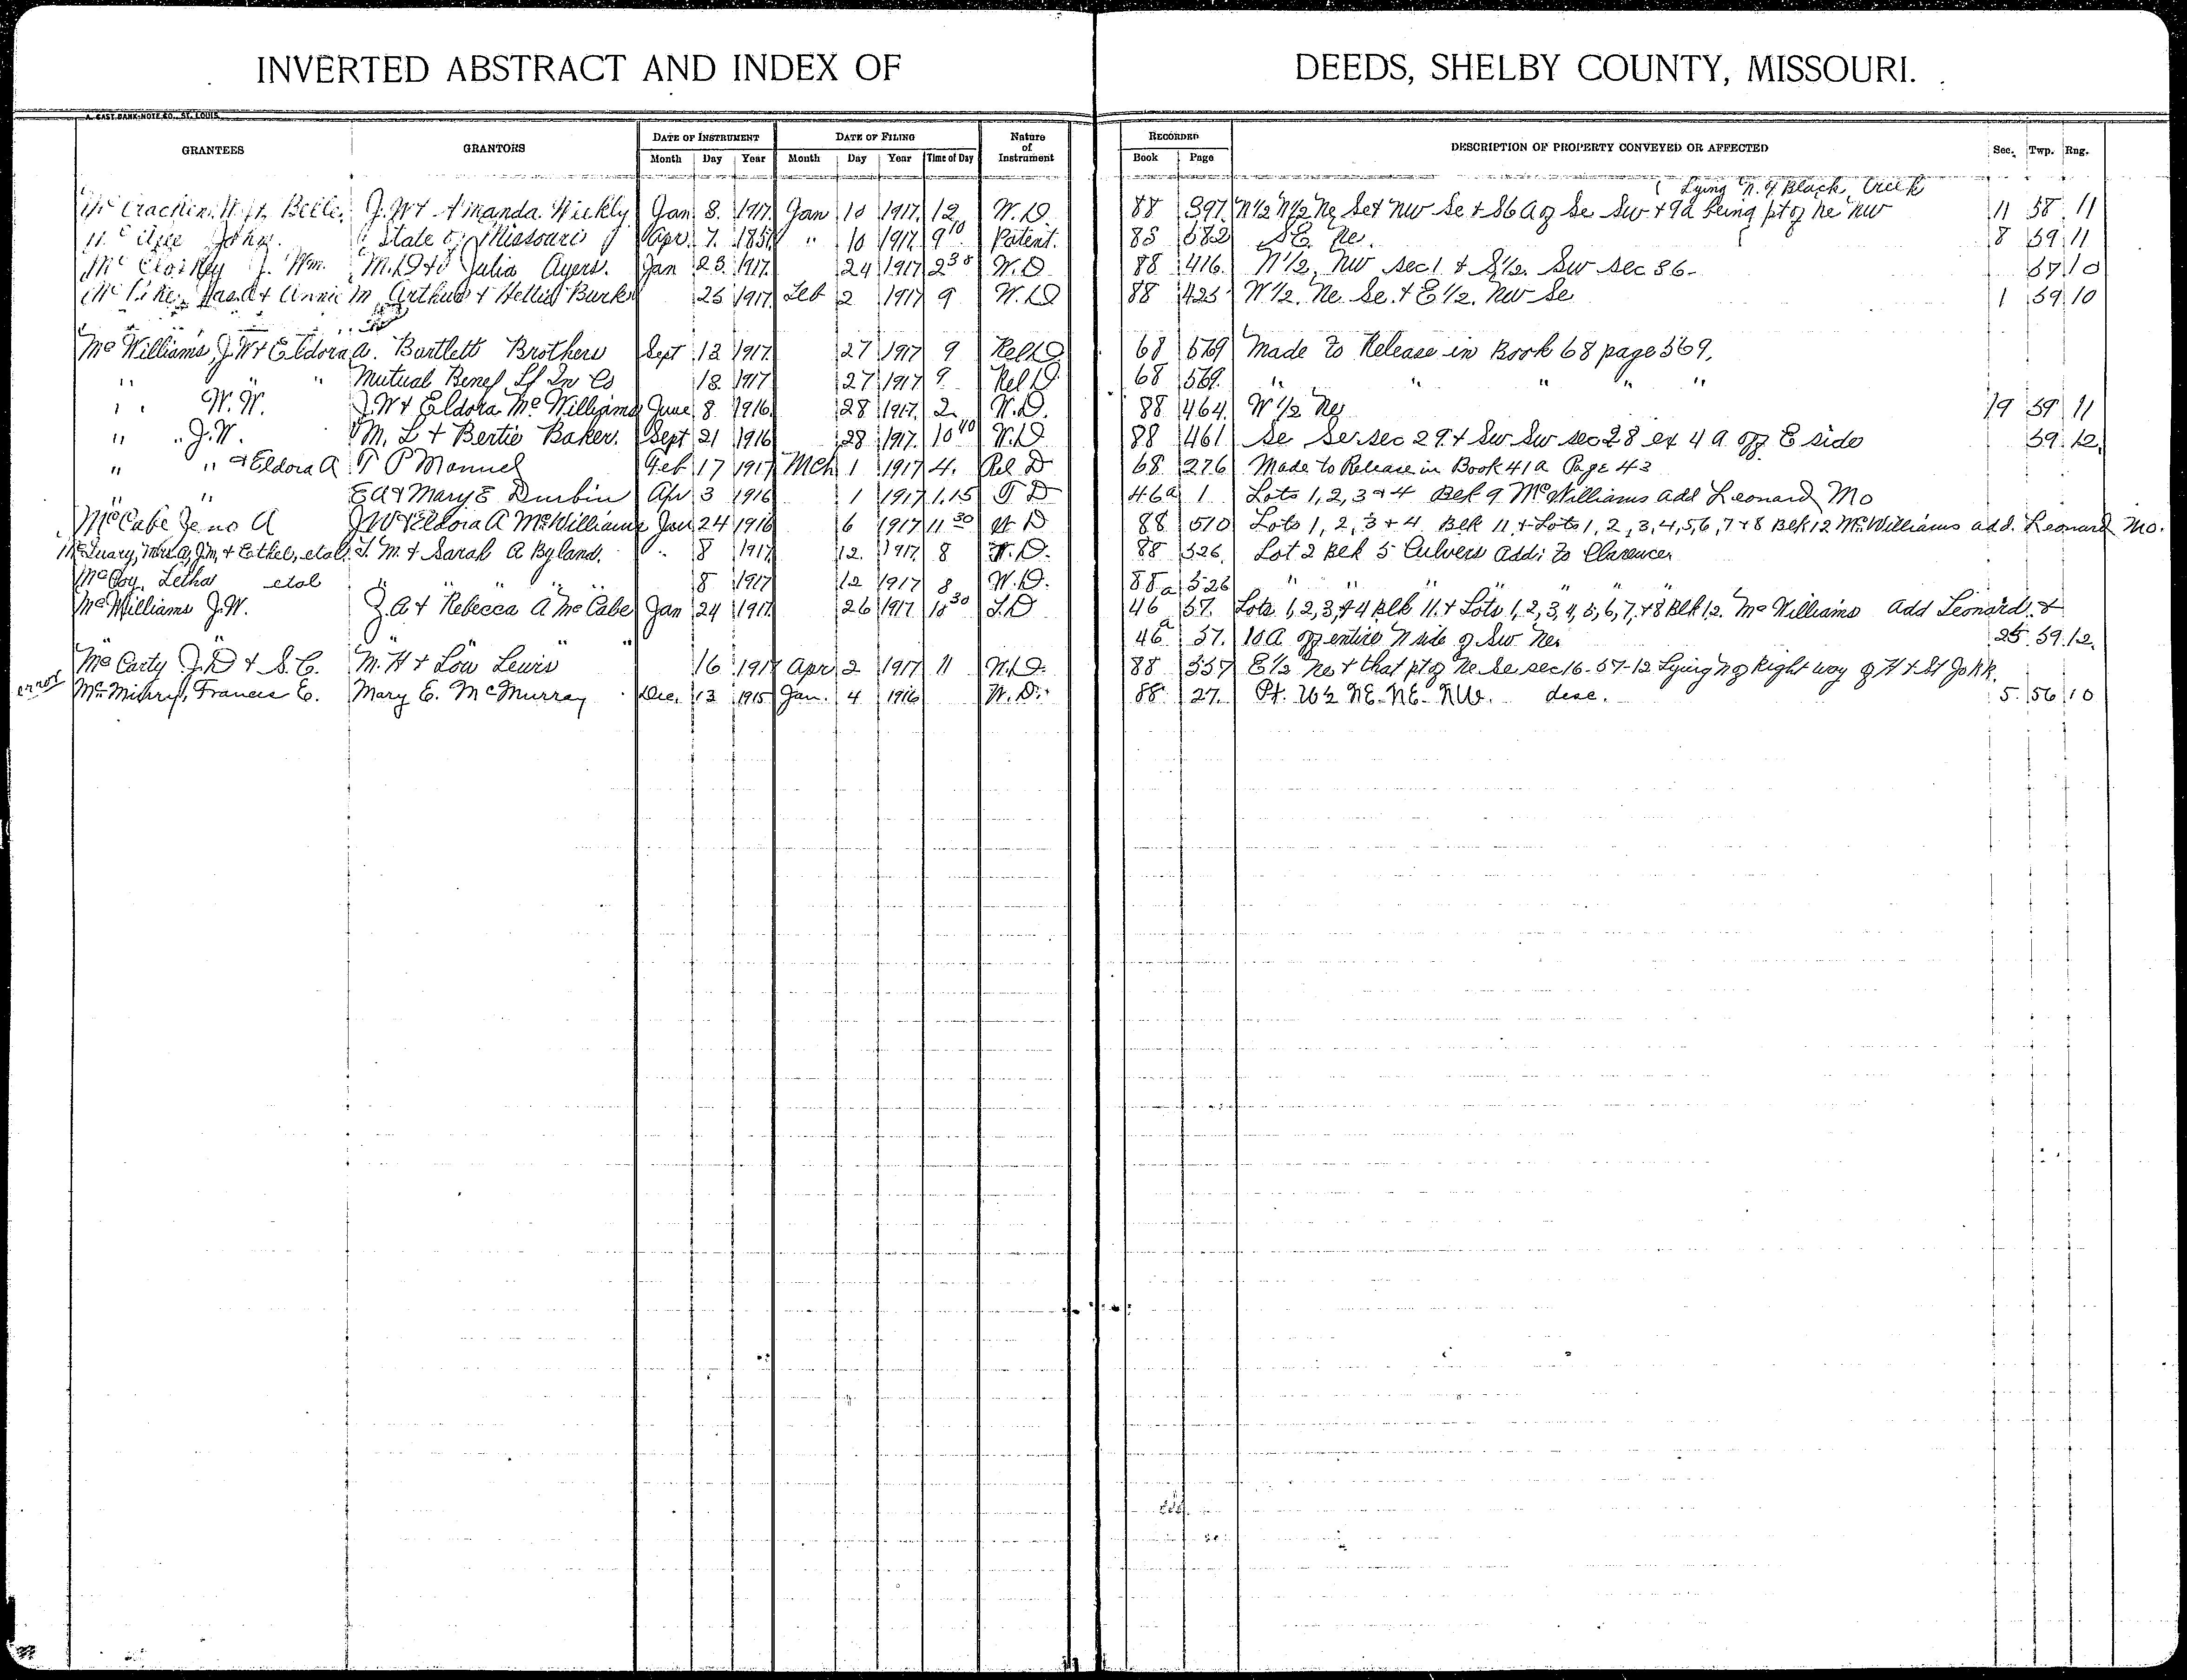 INVERTED ABSTRACT AND INDEX OF DEEDS, SHELBY COUNTY, MISSOURI.
A. GAST BANK NOTE CO., ST. LOUIS
GRANTEES GRANTORS DATE OF INSTRUMENT DATE OF FILING Nature of Instrument RECORDED DESCRIPTION OF PROPERTY CONVEYED OR AFFECTED Sec. Twp. Rng.
Month Day Year Month Day Year Time of Day Book Page
( Lying N. of Black Creek
Belle, J.W + Amanda Jan 8. 1917. Jan 10 1917. 12 W.D 88 397. N1/2 N1/2 Ne Se + NW Se + 36 A of Se Sw + 9a being pt of Ne NW 11 58 11
John. State of Missouri Apr. 7. 1851. " 10 1917. 9 10 Patent. 83 582 S.E. Ne. 8 59 11
J. Wm. M.D + J Julia Ayers. Jan 23. 1917. 24 1917 2 30 W.D 88 416. N1/2, NW sec 1 + S1/2. Sw sec 36 57 10
Mc Pike, + Annie M Arthur + Nettie Burk 25 1917. Feb 2 1917 9 W.D 88 425 W1/2. Ne Se. + E1/2. NW Se 1 59 10
Mc Williams, J.W + Eldora A. Bartlett Brothers Sept 12 1917. 27 1917 9 Rel D 68 569 Made to Release in Book 68 page 569.
" " " Mutual Benef Lf In Co 18 1917 27 1917 9 Rel D 68 569. " " " " "
" W.W. J.W + Eldora Mc Williams June 8 1916. 28 1917. 2 W.D. 88 464. W1/2 Ne 19 59 11
" " J.W. M. L + Bertie Baker. Sept 21 1916 28 1917. 10 40 W.D 88 461 Se Se sec 29. + Sw Sw sec 28 ex 4 a. off E side 59. 12.
" " + Eldora A T P Manuel Feb 17 1917 Mch 1 1917 4. Rel D 68 276 Made to Release in Book 41a Page 43
" " E A + Mary E Durbin Apr 3 1916 1 1917 1.15 T D 46a 1 Lots 1, 2, 3 + 4 Blk 9 McWilliams add Leonard Mo
McCabe Zeno A J W + Eldora A McWilliams Jan 24 1916 6 1917 11 30 W D 88 510 Lots 1, 2, 3 + 4 Blk 11 + Lots 1, 2, 3, 4, 5, 6, 7 + 8 Blk 12 McWilliams add. Leonard Mo.
Mrs. A, Jim, + Eathel, etal. T. M. + Sarah A Byland. " 8 1917 12. 1917. 8 W.D. 88 526. Lot 2 Blk 5 Culvers Addi. to Clarence
McCoy Letha etal " " " " " 8 1917 12 1917 8 W.D. 88 526 " " " " " " "
McWilliams J.W. Z.A + Rebecca A McCabe Jan 24 1917. 26 1917 10 30 T.D 46a 57. Lots 1, 2, 3, + 4 Blk 11. + Lots 1, 2, 3, 4, 5, 6, 7, + 8 Blk 12. McWilliams Add Leonard. +
46a 57. 10 A off entire N side of Sw Ne 25. 59. 12.
McCarty J.D + S.C. M. H + Lou Lewis " 16 1917 Apr 2 1917 11 W.D. 88 557 E1/2 Ne + that pt of Ne Se sec 16-57-12 Lying N of Right way of H + St Jo RR.
error McMurry, Frances E. Mary E. McMurray Dec. 13 1915 Jan. 4 1916 W.D. 88 27. Pt. W 2 NE-NE-NW. desc. 5. 56 10